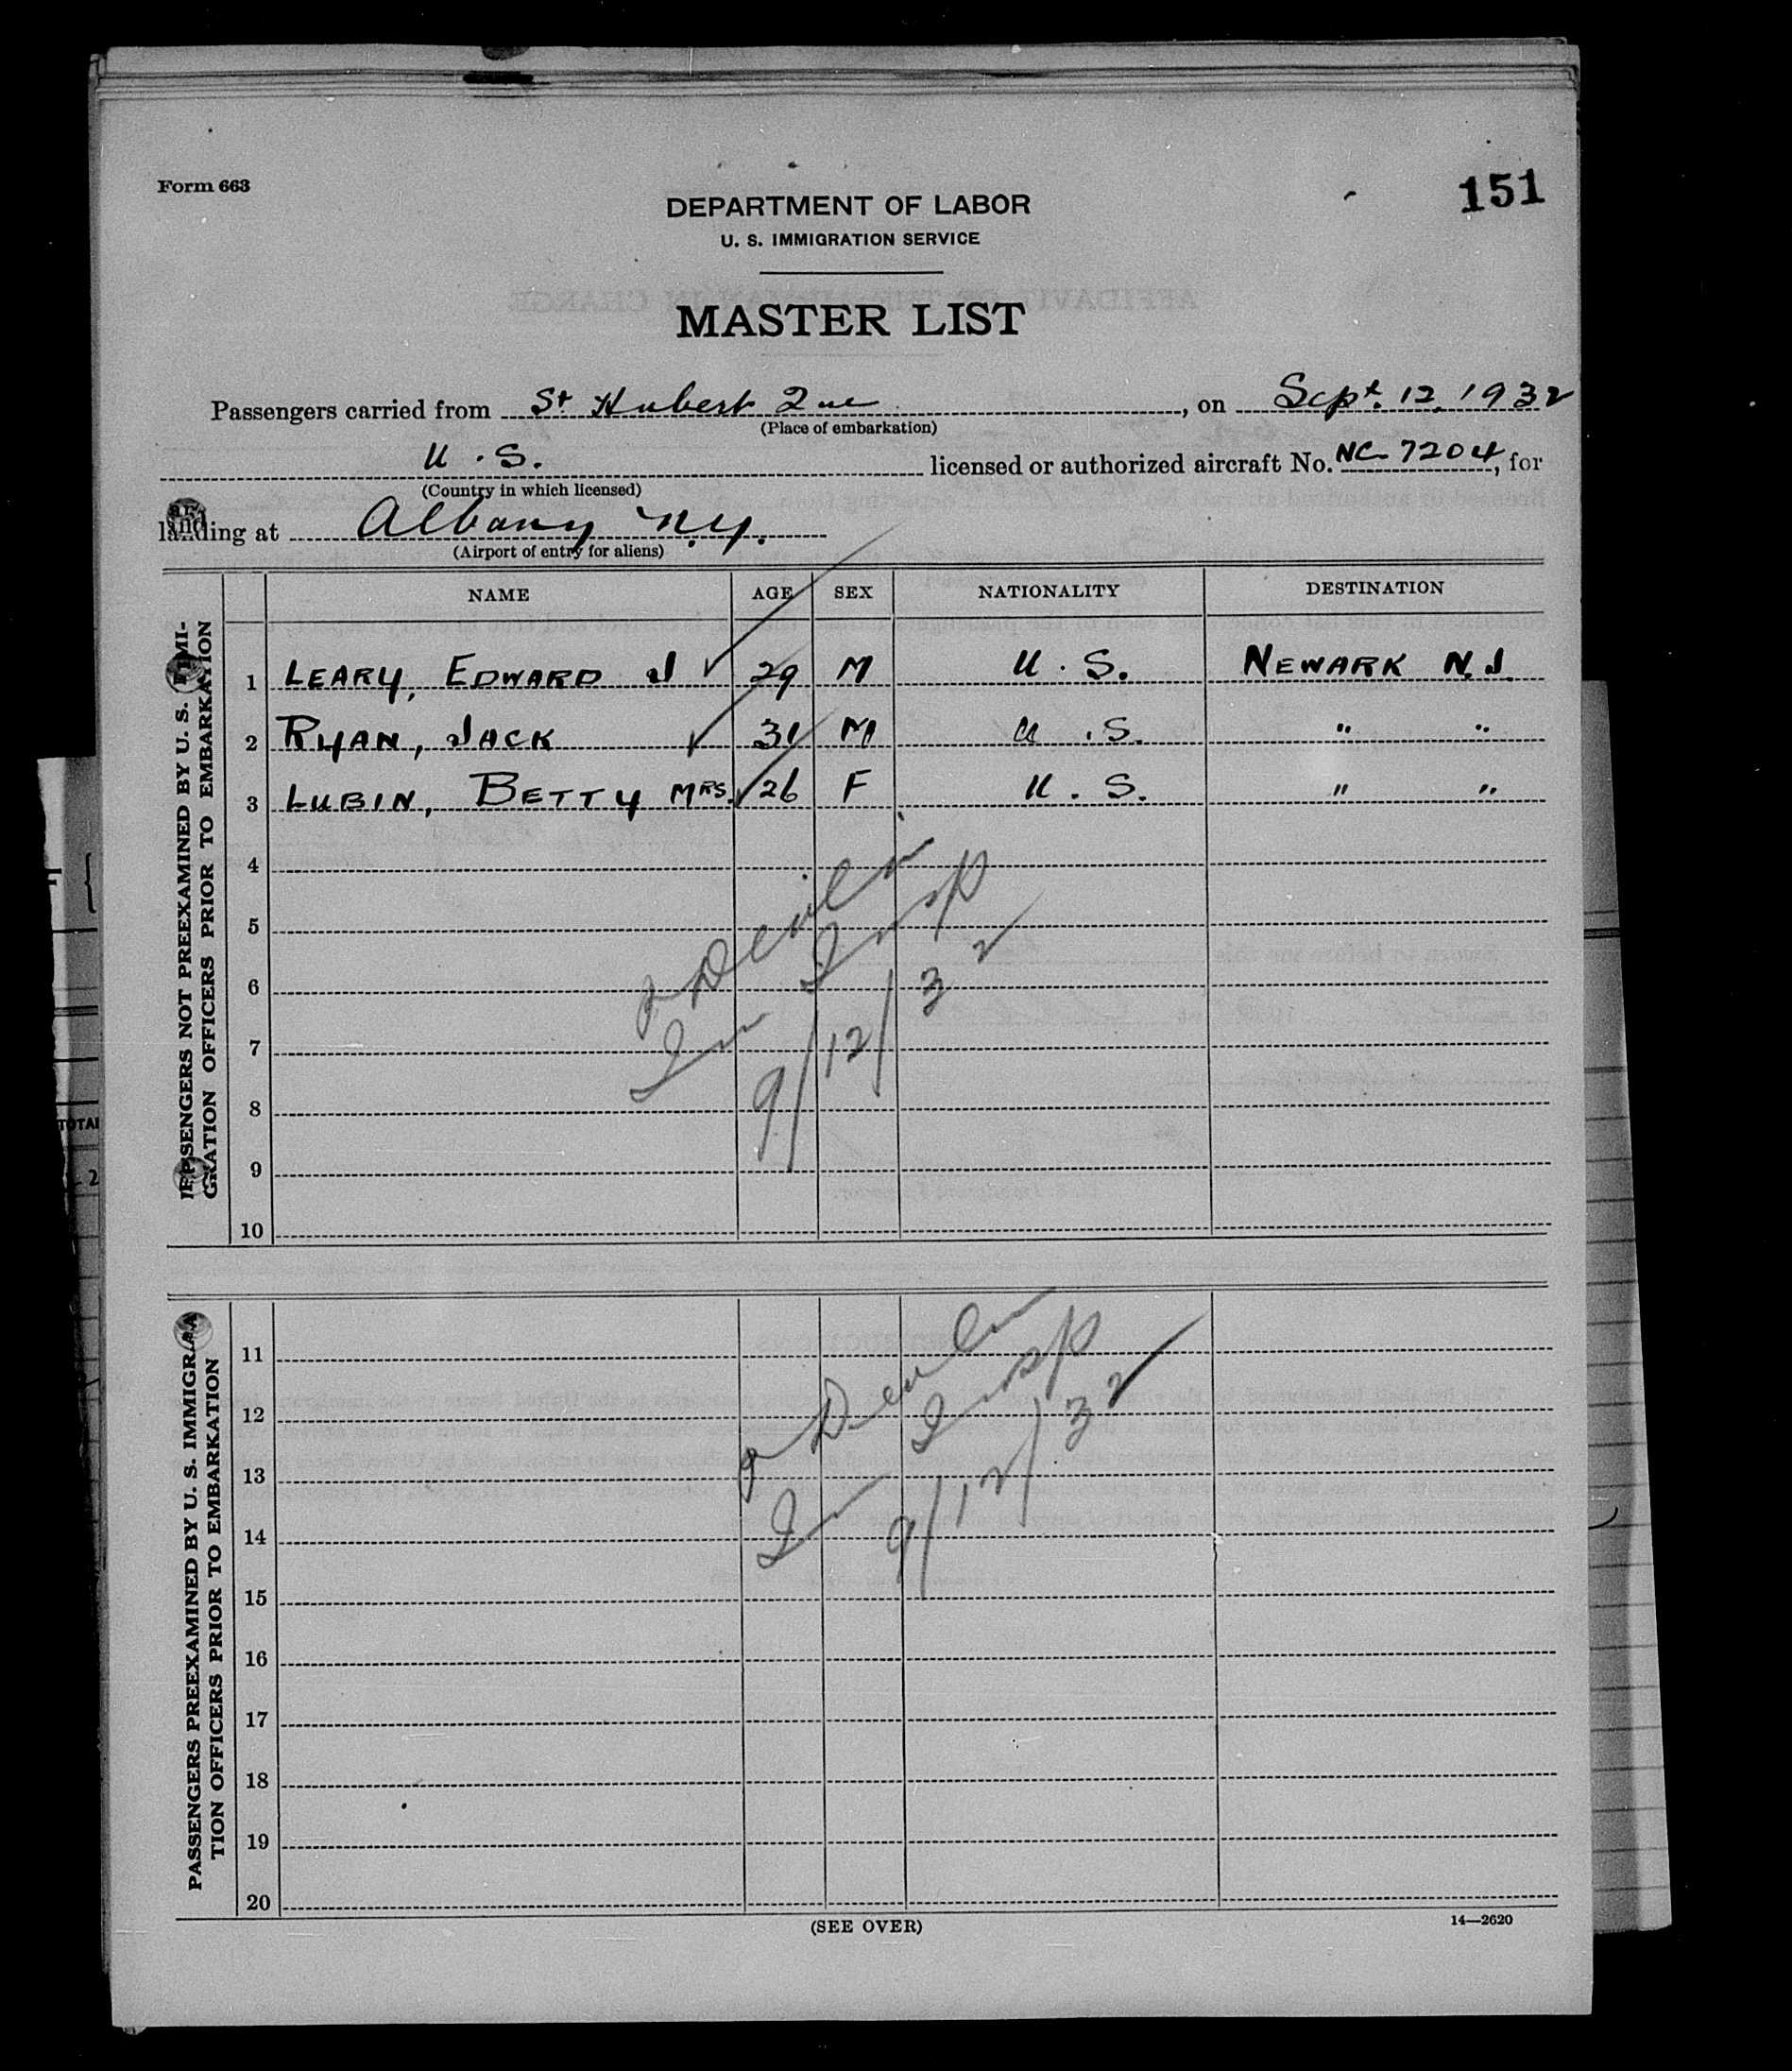 Form 663
151
DEPARTMENT OF LABOR
U. S. IMMIGRATION SERVICE
MASTER LIST
Passengers carried from St Hubert Que, on Sept. 12, 1932
(Place of embarkation)
U. S. licensed or authorized aircraft No. NC 7204, for
(Country in which licensed)
landing at Albany N.Y.
(Airport of entry for aliens)
NAME AGE SEX NATIONALITY DESTINATION
PASSENGERS NOT PREEXAMINED BY U. S. IMMI-
GRATION OFFICERS PRIOR TO EMBARKATION
1 LEARY, EDWARD J 29 M U. S. NEWARK N.J.
2 RYAN, JACK 31 M U. S. " "
3 LUBIN, BETTY MRS. 26 F U. S. " "
4
5
6
7
8
9
10
Devlin
Im Insp
9/12/32
PASSENGERS PREEXAMINED BY U. S. IMMIGRA-
TION OFFICERS PRIOR TO EMBARKATION
11
12
13
14
15
16
17
18
19
20
Devlin
Im Insp
9/12/32
(SEE OVER)
14—2620
TOTAL
2